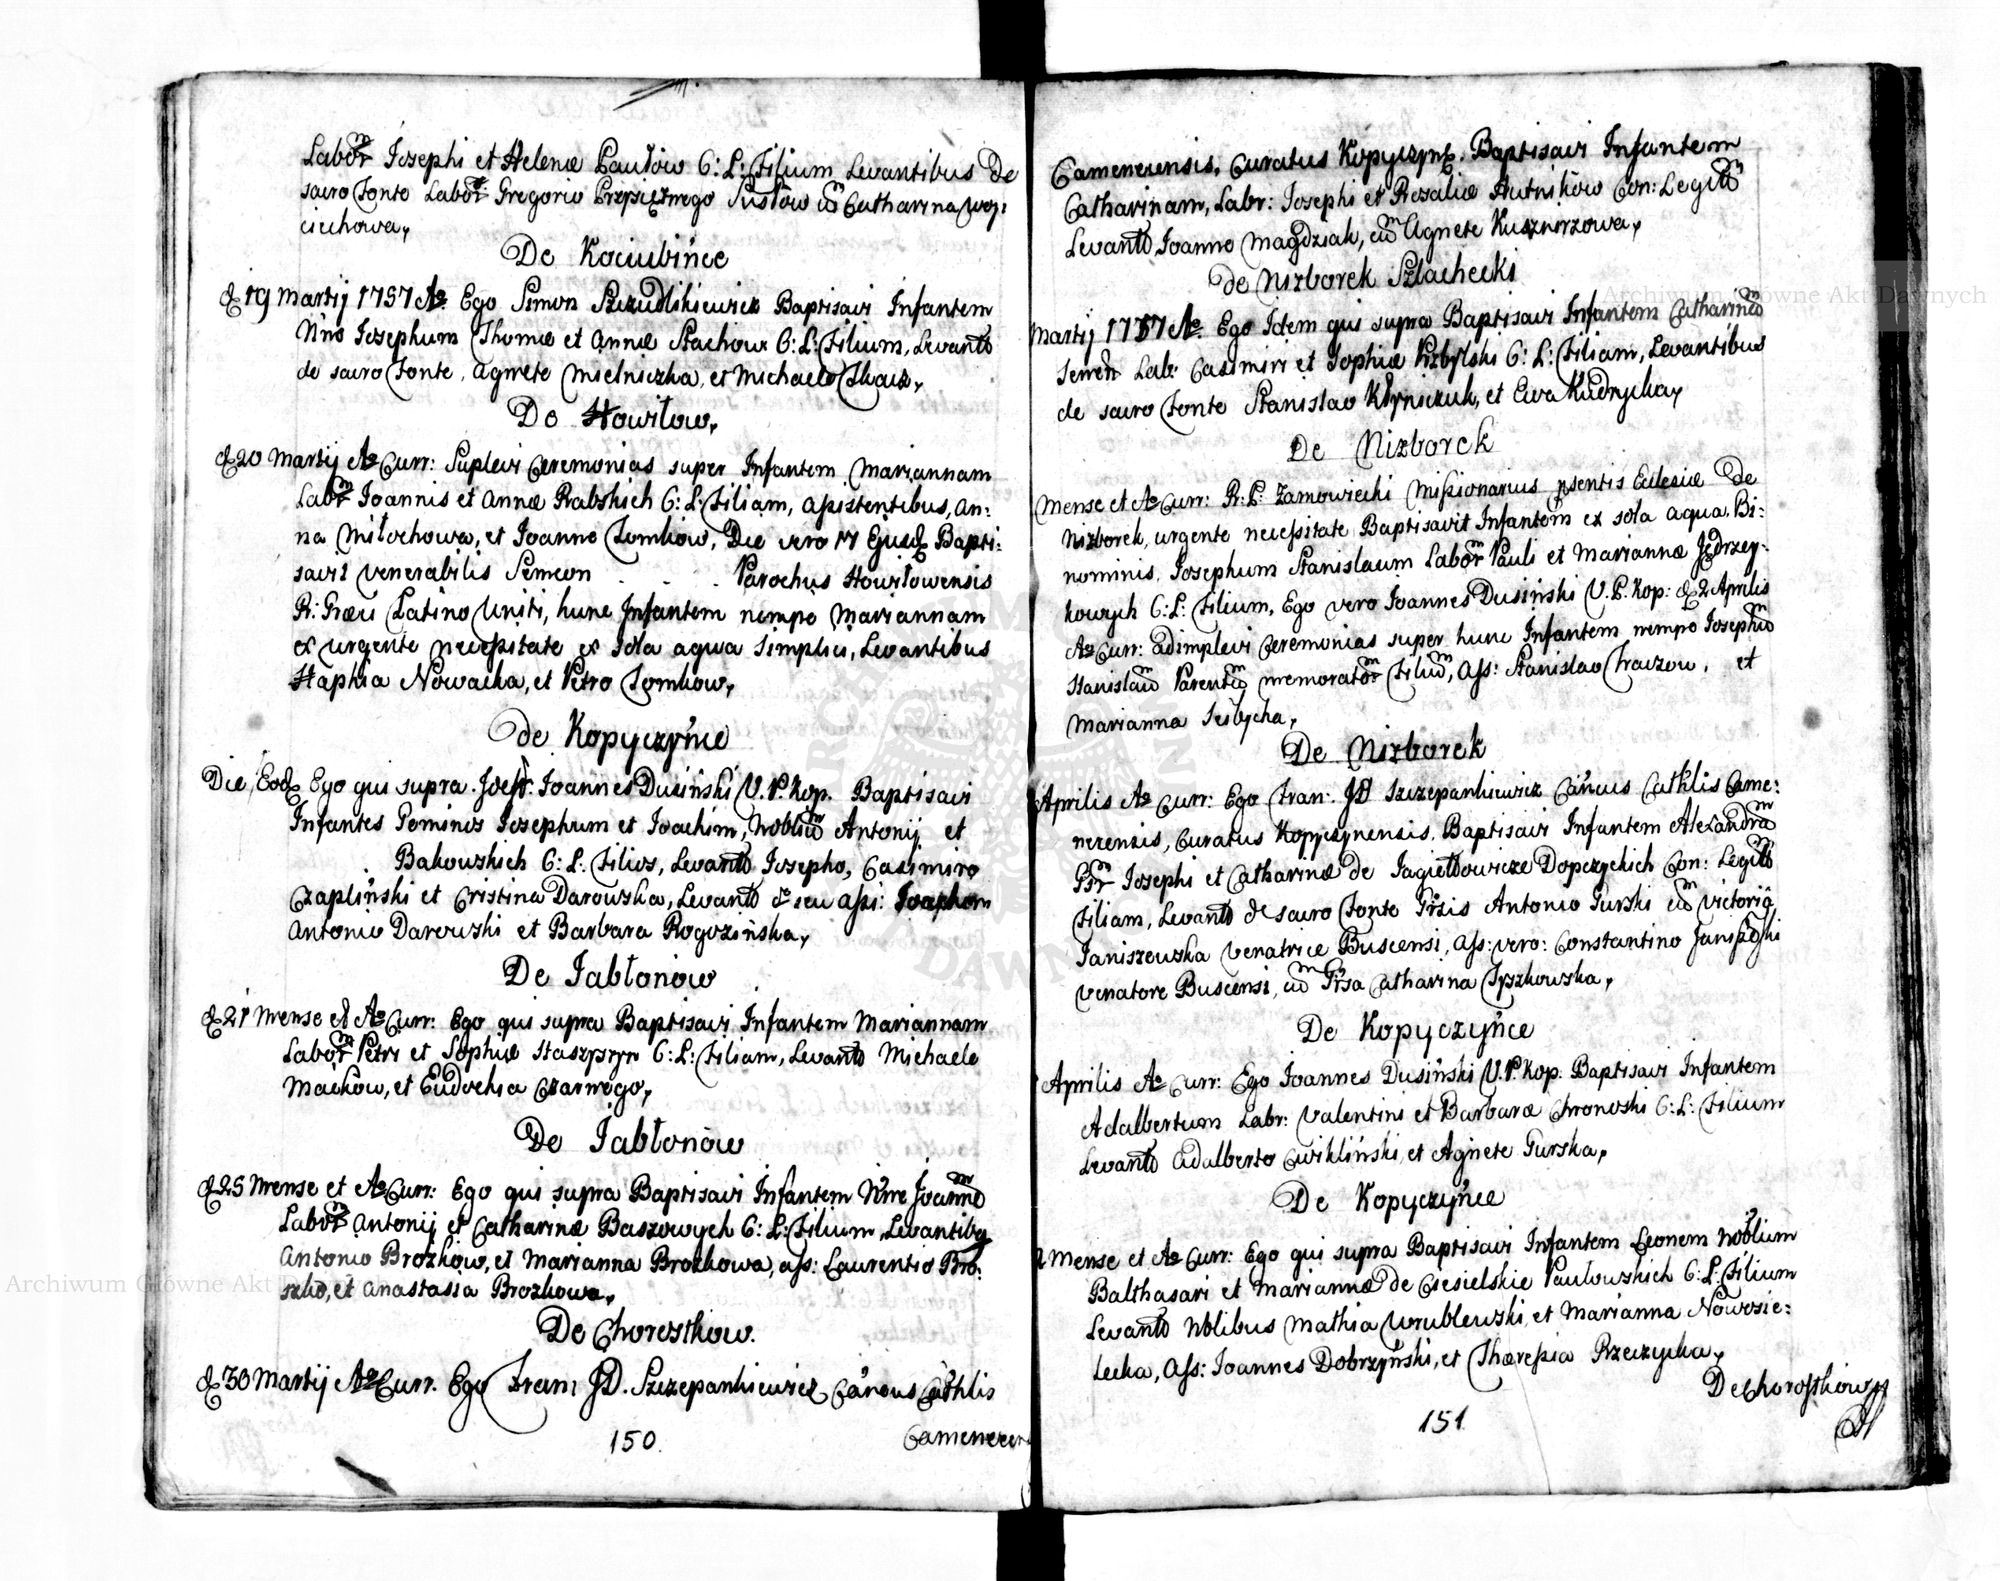 Labor Josephi et Helenæ Pawłow C: L: Filium Levantibus De
sacro Fonte Labor: Gregorio Przpięznego Susłow cum Catharina Woy:
ciechowa,
De Kociubińce
d 19 Martij 1757 Ao Ego Simon Szczudlikiewicz Baptisavi Infantem
Nne Josephum Thomæ et Annæ Stachow C: L: Filium, Levantb
de sacro Fonte, Agnete Mielniczka, et Michaele Tkacz,
De Howiłow,
d 20 Martij Ao Curr: Suplevi Ceremonias super Infantem Mariannam
Labor Joannis et Annæ Rabskich C: L: Filiam, Assistentibus, An:
na Miłochowa, et Joanne Tomkow, Die vero 17 Ejusd Bapti:
savit Venerabilis Simeon . . . Parochus Howiłowensis
R: Græci Latino Uniti, hunc Infantem nempe Mariannam
ex urgente necessitate ex sola aqua simplici, Levantibus
Haphia Nowacka, et Petro Tomkow,
de Kopyczyńce
Die Eod Ego qui supra Joannes Dusiński V. P. Kop. Baptisavi
Infantes Geminos Josephum et Joachim, Noblium Antonij et
Bakowskich C: L: Filios, Levantb Josepho, Casimiro
Czapliński et Cristina Darowska, Levantb seu Assi:
Antonio Darowski et Barbara Rogozińska,
De Jabłonow
d 21 Mense et Ao Curr: Ego qui supra Baptisavi Infantem Mariannam
Labor Petri et Sophiæ Staszpryn C: L: Filiam, Levantb Michaele
Mackow, et Eudochia Czarnego,
De Jabłonow
d 25 Mense et Ao Curr: Ego qui supra Baptisavi Infantem Nne Joannem
Labor Antonij et Catharinæ Baszowych C: L: Filium, Levantibq
Antonio Brozkow, et Marianna Brozkowa, ass: Laurentio Bro:
szko, et Anastasia Brozkowa,
De Chorostkow.
d 30 Martij Ao Curr. Ego Fran: JD. Szczepankiewicz Cancus Cathlis
Camenecen
150.
Camenecensis, Curatus Kopyczyn. Baptisavi Infantem
Catharinam, Labr: Josephi et Rosaliæ Hutnikow Con: Legitto
Levantb Joanne Magdziak, cum Agnete Kusznirzowa,
de Nizborek Szlachecki
Martij 1757 Ao Ego Idem qui supra Baptisavi Infantem Catharinam
Seren Lab: Casimiri et Sophiæ Przbylski C: L: Filiam, Levantibus
de sacro Fonte Stanislao Kłyniczuk, et Ewa Kudrycka,
De Nizborek
Mense et Ao Curr: R: P: Zamowiecki Missionarius psentis Eclesiæ De
Nizborek, urgente necessitate Baptisavit Infantem ex sola aqua, Bi:
nominis, Josephum Stanislaum Labor Pauli et Mariannæ Jędrzey:
kowych C: L: Filium, Ego vero Joannes Dusiński V. P. Kop: d 2 Aprilis
Ao Curr: Adimplevi Ceremonias super hunc Infantem nempe Josephum
Stanislaum Parentum memorator Filium, Ass: Stanislao Traczow, et
Marianna Sesbycha,
De Nizborek
Aprilis Ao Curr: Ego Fran: JD Szczepankiewicz Cancus Cathlis Came:
necensis, Curatus Kopyczynensis, Baptisavi Infantem Alexandram
Gsr Josephi et Catharinæ de Jagiełłowicze Dopczyckich Con: Legitto
Filiam, Levantb de sacro Fonte Grsis Antonio Gurski cum Victoria
Janiszewska Venatrice Buscensi, Ass: vero: Constantino Janiszewski
Venatore Buscensi, cum Grsa Catharina Tyszkowska,
De Kopyczyńce
Aprilis Ao Curr: Ego Joannes Dusiński V. P. Kop: Baptisavi Infantem
Adalbertum Labr: Valentini et Barbaræ Chronoski C: L: Filium
Levantb Adalberto Cwikliński, et Agnete Gurska,
De Kopyczyńce
Mense et Ao Curr: Ego qui supra Baptisavi Infantem Leonem Noblium
Balthasari et Mariannæ De Ciesielskie Pawłowskich C: L: Filium
Levantb Noblibus Mathia Wrublewski, et Marianna Nowosie:
lecka, Ass: Joannes Dobrzyński, et Theressia Rzeczycka,
De Chorostkow
151
Archiwum Główne Akt Dawnych
Archiwum Główne Akt Dawnych
ARCHIWUM GŁÓWNE AKT DAWNYCH